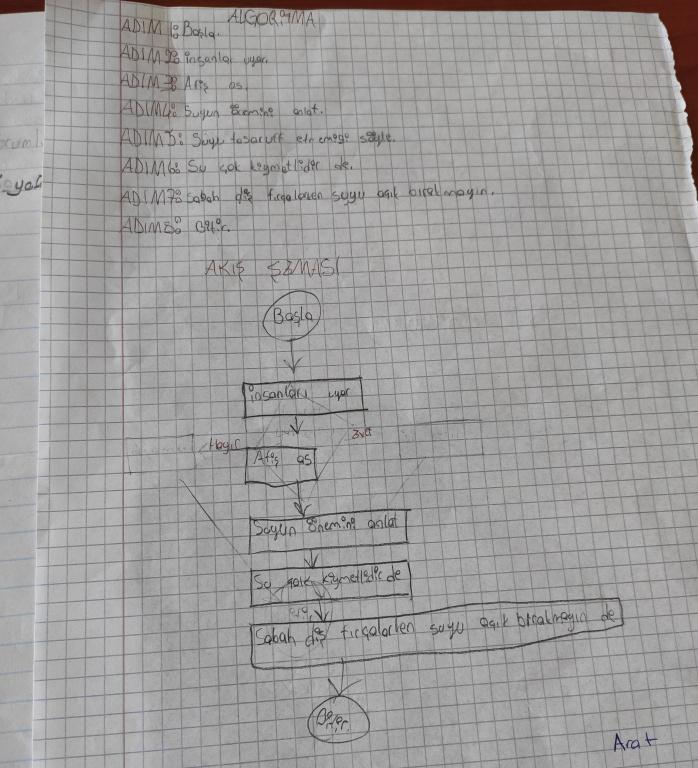 ALGORİTMA
ADIM 1: Başla.
ADIM 2: insanları uyar.
ADIM 3: Afiş as.
ADIM 4: Suyun önemini anlat.
ADIM 5: Suyu tasaruff etmemegi söyle.
ADIM 6: Su çok kıymetlidir de.
ADIM 7: Sabah diş fırçalarken suyu açık bıralmayın.
ADIM 8: Bitir.
AKIŞ ŞEMASI
Başla
insanları uyar
Hayır
Evet
Afiş as
Suyun önemini anlat
Su çok kıymetlidir de
Sabah diş fırçalarken suyu açık bıralmayın de
Bitir.
Arat